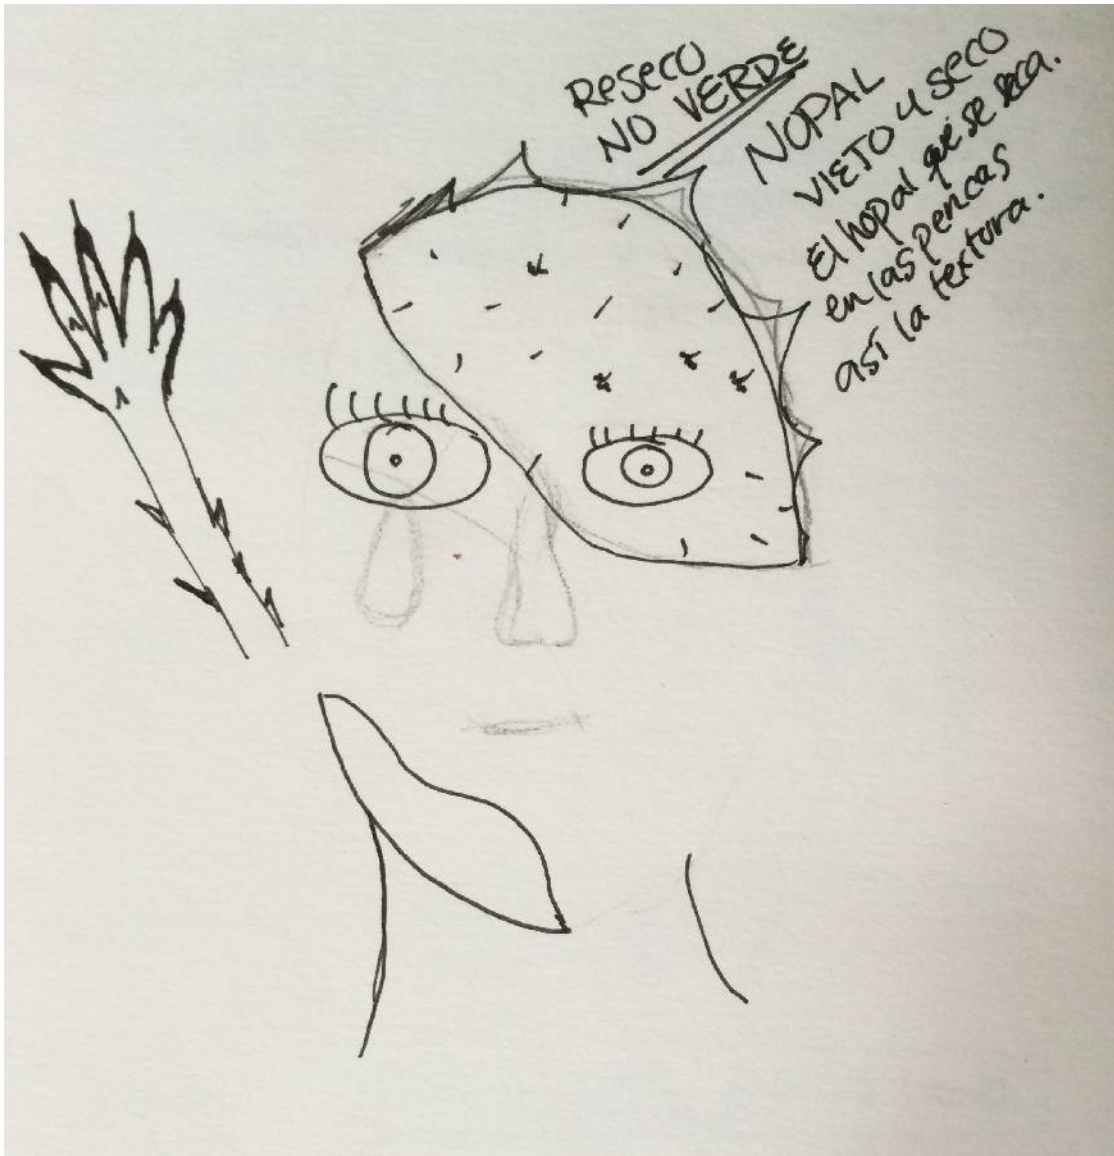 Reseco
NO VERDE
NOPAL
VIEJO y SECO
El nopal que se seca.
en las pencas
así la textura.